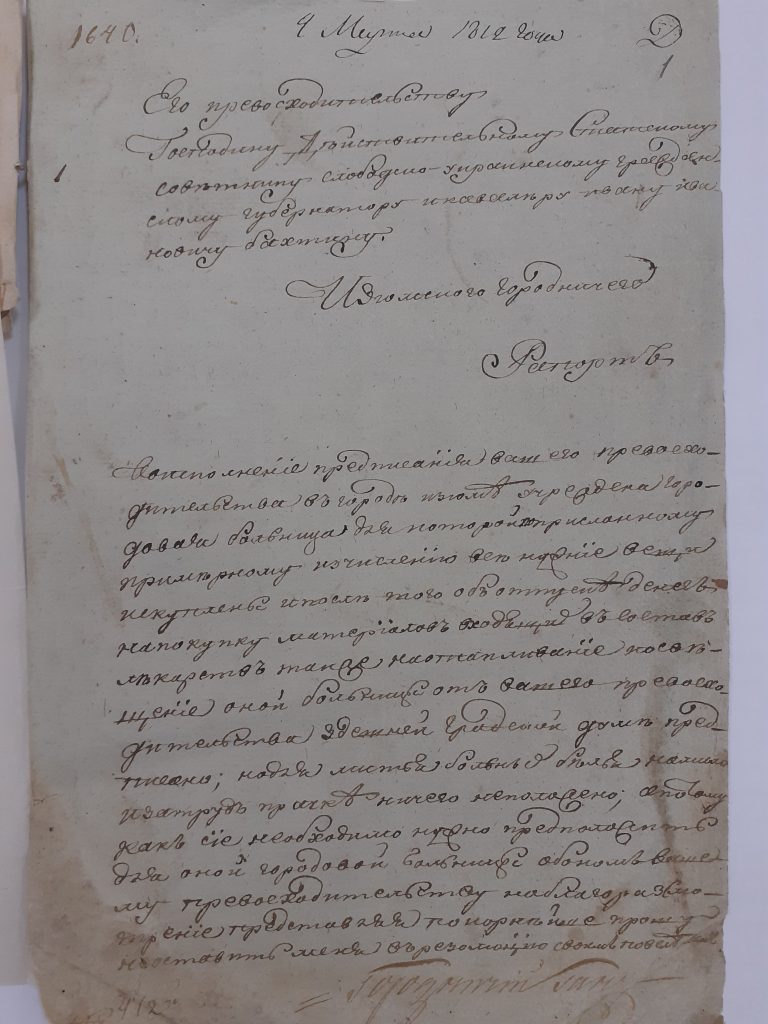 1640.
4 Марта 1812 года
1
1
Его превосходительству
Господину Действительному Статскому
советнику слободско-украинскому граждан-
скому губернатору икавалеру ивану ива
новичу бахтину.
Изюмского Городничего
Рапортъ
Воисполнение предписания вашего превосхо-
дительства въ городе изюме учреждена горо-
довая больница, для которой поприсланному
примерному изчислению все нужние вещи
искуплены ипосле того обоотпуске денегъ
напокупку материаловъ входящие въ составъ
лекарствъ также наотапливание иосве-
щение оной больницы отъ вашего превосхо-
дительства здешней градской думе пред-
писано; нодля мытья больныхъ белья намыло
изатрудъ прачке ничего неположено; апотому
какъ сие необходимо нужно предположить
для оной городовой больницы обономъ ваше-
му превосходительству наблагоразсмо-
трение представляя покорнейше прошу
наставить меня въ резолюцию своимъ
Городничий
412